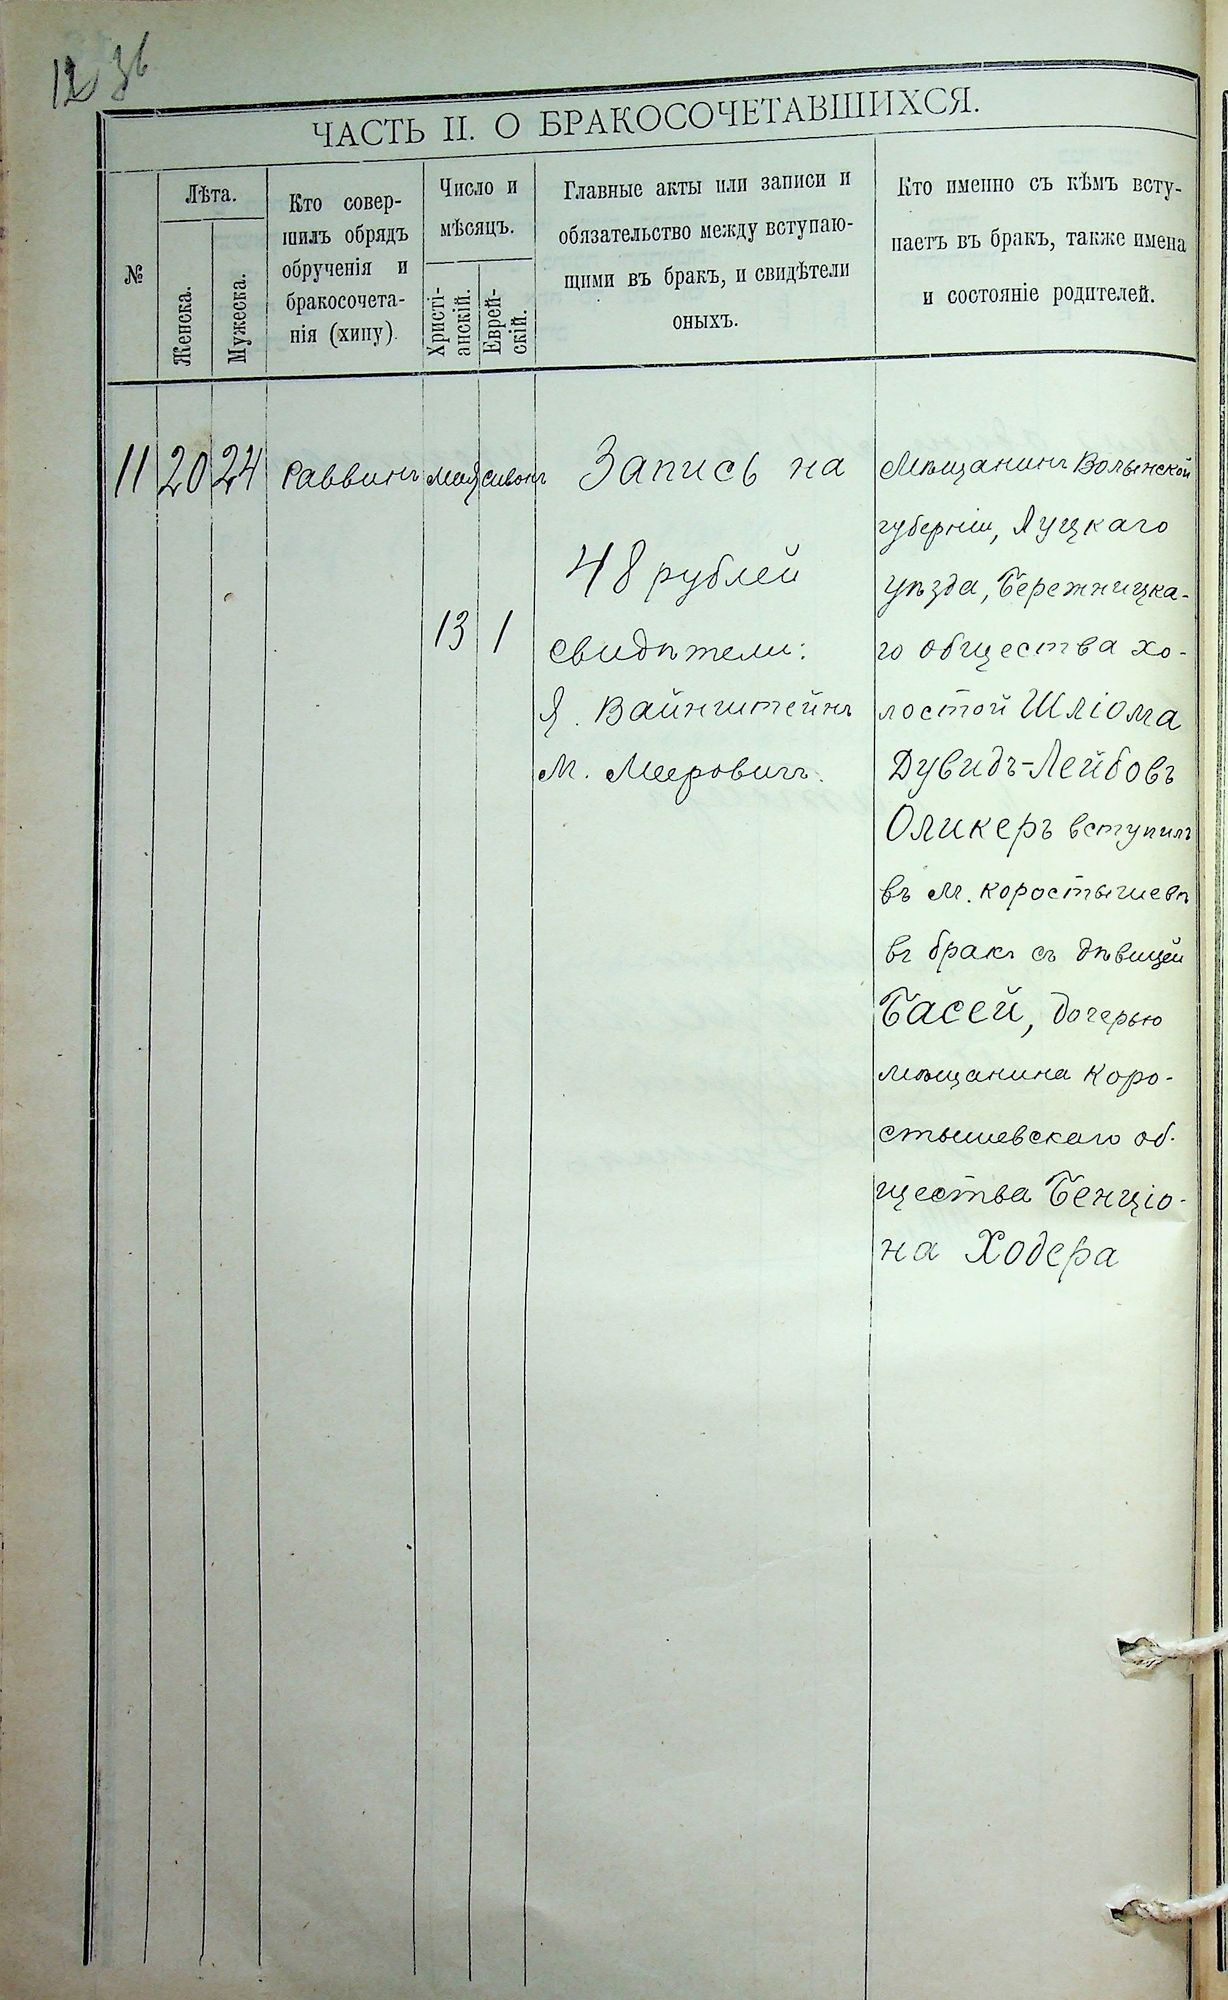 12 36
ЧАСТЬ II. О БРАКОСОЧЕТАВШИХСЯ.
№
Лѣта.
Женска.
Мужеска.
Кто совер-
шилъ обрядъ
обрученія и
бракосочета-
нія (хипу).
Число и
мѣсяцъ.
Христі-
анскій.
Еврей-
скій.
Главные акты или записи и
обязательство между вступаю-
щими въ бракъ, и свидѣтели
оныхъ.
Кто именно съ кѣмъ всту-
паетъ въ бракъ, также имена
и состояніе родителей.
11 20 24 Раввинъ мая сивонъ
13 1
Запись на
48 рублей
свидѣтели:
Я. Вайнштейнъ
М. Мееровичъ.
Мѣщанинъ Волынской
губерніи, Луцкаго
уѣзда, Бережницка-
го общества хо-
лостой Шліома
Дувидъ-Лейбовъ
Оликеръ вступилъ
въ м. Коростышевѣ
въ бракъ съ дѣвицей
Басей, дочерью
мѣщанина Коро-
стышевскаго об-
щества Бенціо-
на Ходера